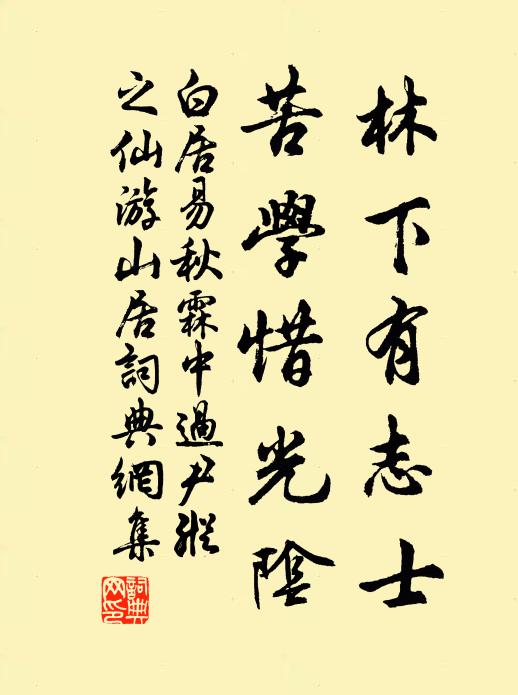 林下有志士
苦學惜光陰
白居易秋霖中過尹縱
之仙游山居詞典網集
詞典網印